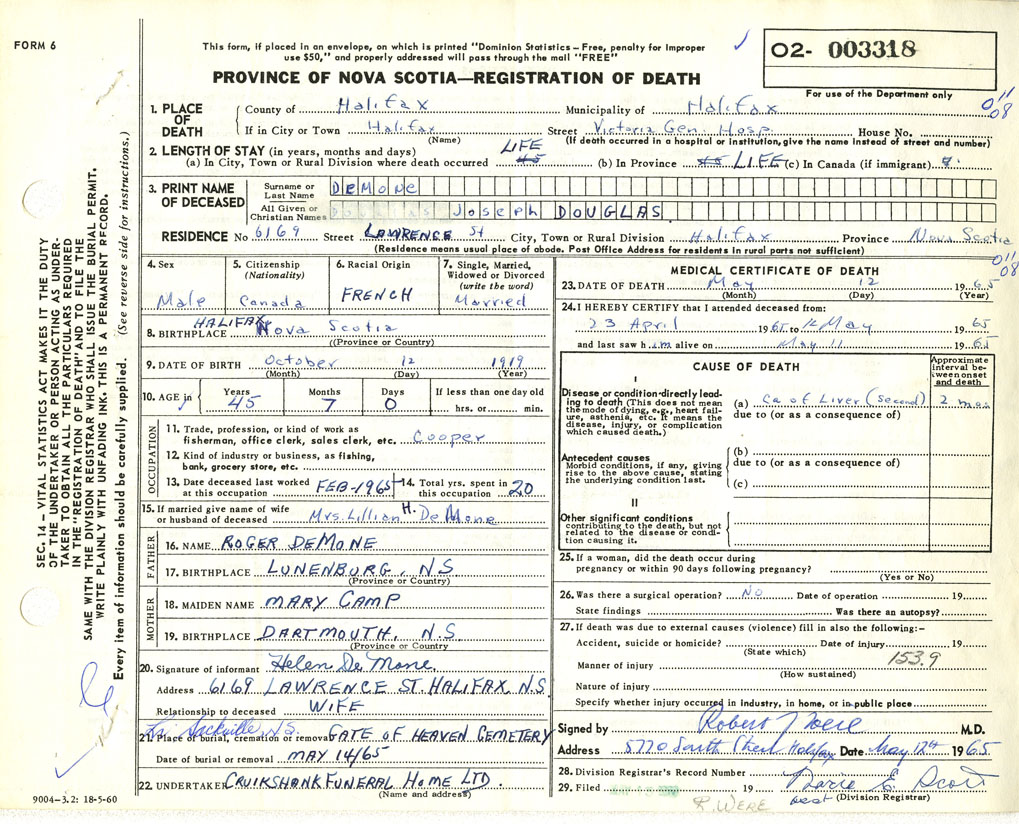 FORM 6
This form, if placed in an envelope, on which is printed "Dominion Statistics – Free, penalty for improper
use $50," and properly addressed will pass through the mail "FREE"
PROVINCE OF NOVA SCOTIA—REGISTRATION OF DEATH
02- 003318
For use of the Department only
011
08
1. PLACE OF DEATH
County of Halifax Municipality of Halifax
If in City or Town Halifax Street Victoria Gen. Hosp. House No.
(Name) (If death occurred in a hospital or institution, give the name instead of street and number)
2. LENGTH OF STAY (in years, months and days)
(a) In City, Town or Rural Division where death occurred 45 LIFE (b) In Province 45 LIFE (c) In Canada (if immigrant)
3. PRINT NAME OF DECEASED
Surname or Last Name DeMone
All Given or Christian Names Joseph DOUGLAS
RESIDENCE No 6169 Street LAWRENCE St City, Town or Rural Division Halifax Province Nova Scotia
(Residence means usual place of abode. Post Office Address for residents in rural parts not sufficient)
011
08
4. Sex
Male
5. Citizenship
(Nationality)
Canada
6. Racial Origin
FRENCH
7. Single, Married, Widowed or Divorced
(write the word)
Married
8. BIRTHPLACE HALIFAX Nova Scotia
((Province or Country)
9. DATE OF BIRTH October 12 1919
(Month) (Day) (Year)
10. AGE in Years 45 Months 7 Days 0 If less than one day old
hrs. or min.
OCCUPATION
11. Trade, profession, or kind of work as
fisherman, office clerk, sales clerk, etc. Cooper
12. Kind of industry or business, as fishing,
bank, grocery store, etc.
13. Date deceased last worked
at this occupation FEB-1965
14. Total yrs. spent in
this occupation 20
15. If married give name of wife
or husband of deceased Mrs. Lillian H. DeMone
FATHER
16. NAME ROGER DEMONE
17. BIRTHPLACE LUNENBURG, NS
(Province or Country)
MOTHER
18. MAIDEN NAME MARY CAMP
19. BIRTHPLACE DARTMOUTH, N.S
(Province or Country)
20. Signature of informant Helen De Mone
Address 6169 LAWRENCE ST. HALIFAX N.S.
Relationship to deceased WIFE
Sackville, N.S.
21. Place of burial, cremation or removal GATE OF HEAVEN CEMETERY
Date of burial or removal MAY 14/65
22. UNDERTAKER CRUIKSHANK FUNERAL HOME LTD.
(Name and address)
MEDICAL CERTIFICATE OF DEATH
23. DATE OF DEATH May 12 1965
(Month) (Day) (Year)
24. I HEREBY CERTIFY that I attended deceased from:
23 April 1965 to 12 May 1965
and last saw him alive on May 11 1965
CAUSE OF DEATH
Approximate interval between onset and death
I
Disease or condition directly leading to death (This does not mean the mode of dying, e.g., heart failure, asthenia, etc. It means the disease, injury, or complication which caused death.)
(a) Ca of Liver (Second) 2 mos
due to (or as a consequence of)
Antecedent causes
Morbid conditions, if any, giving rise to the above cause, stating the underlying condition last.
(b)
due to (or as a consequence of)
(c)
II
Other significant conditions
contributing to the death, but not related to the disease or condition causing it.
25. If a woman, did the death occur during
pregnancy or within 90 days following pregnancy?
(Yes or No)
26. Was there a surgical operation? No Date of operation 19
State findings Was there an autopsy?
27. If death was due to external causes (violence) fill in also the following:–
Accident, suicide or homicide? Date of injury 19
(State which)
153.9
Manner of injury
(How sustained)
Nature of injury
Specify whether injury occurred in industry, in home, or in public place
Signed by Robert J Were M.D.
Address 5770 South Street Halifax Date May 12th 1965
28. Division Registrar's Record Number
29. Filed 19
E. Scott
(Division Registrar)
R. WERE
SEC. 14 – VITAL STATISTICS ACT MAKES IT THE DUTY
OF THE UNDERTAKER OR PERSON ACTING AS UNDER-
TAKER TO OBTAIN ALL THE PARTICULARS REQUIRED
IN THE "REGISTRATION OF DEATH" AND TO FILE THE
SAME WITH THE DIVISION REGISTRAR WHO SHALL ISSUE THE BURIAL PERMIT.
WRITE PLAINLY WITH UNFADING INK. THIS IS A PERMANENT RECORD.
Every item of information should be carefully supplied. (See reverse side for instructions.)
9004-3.2: 18-5-60